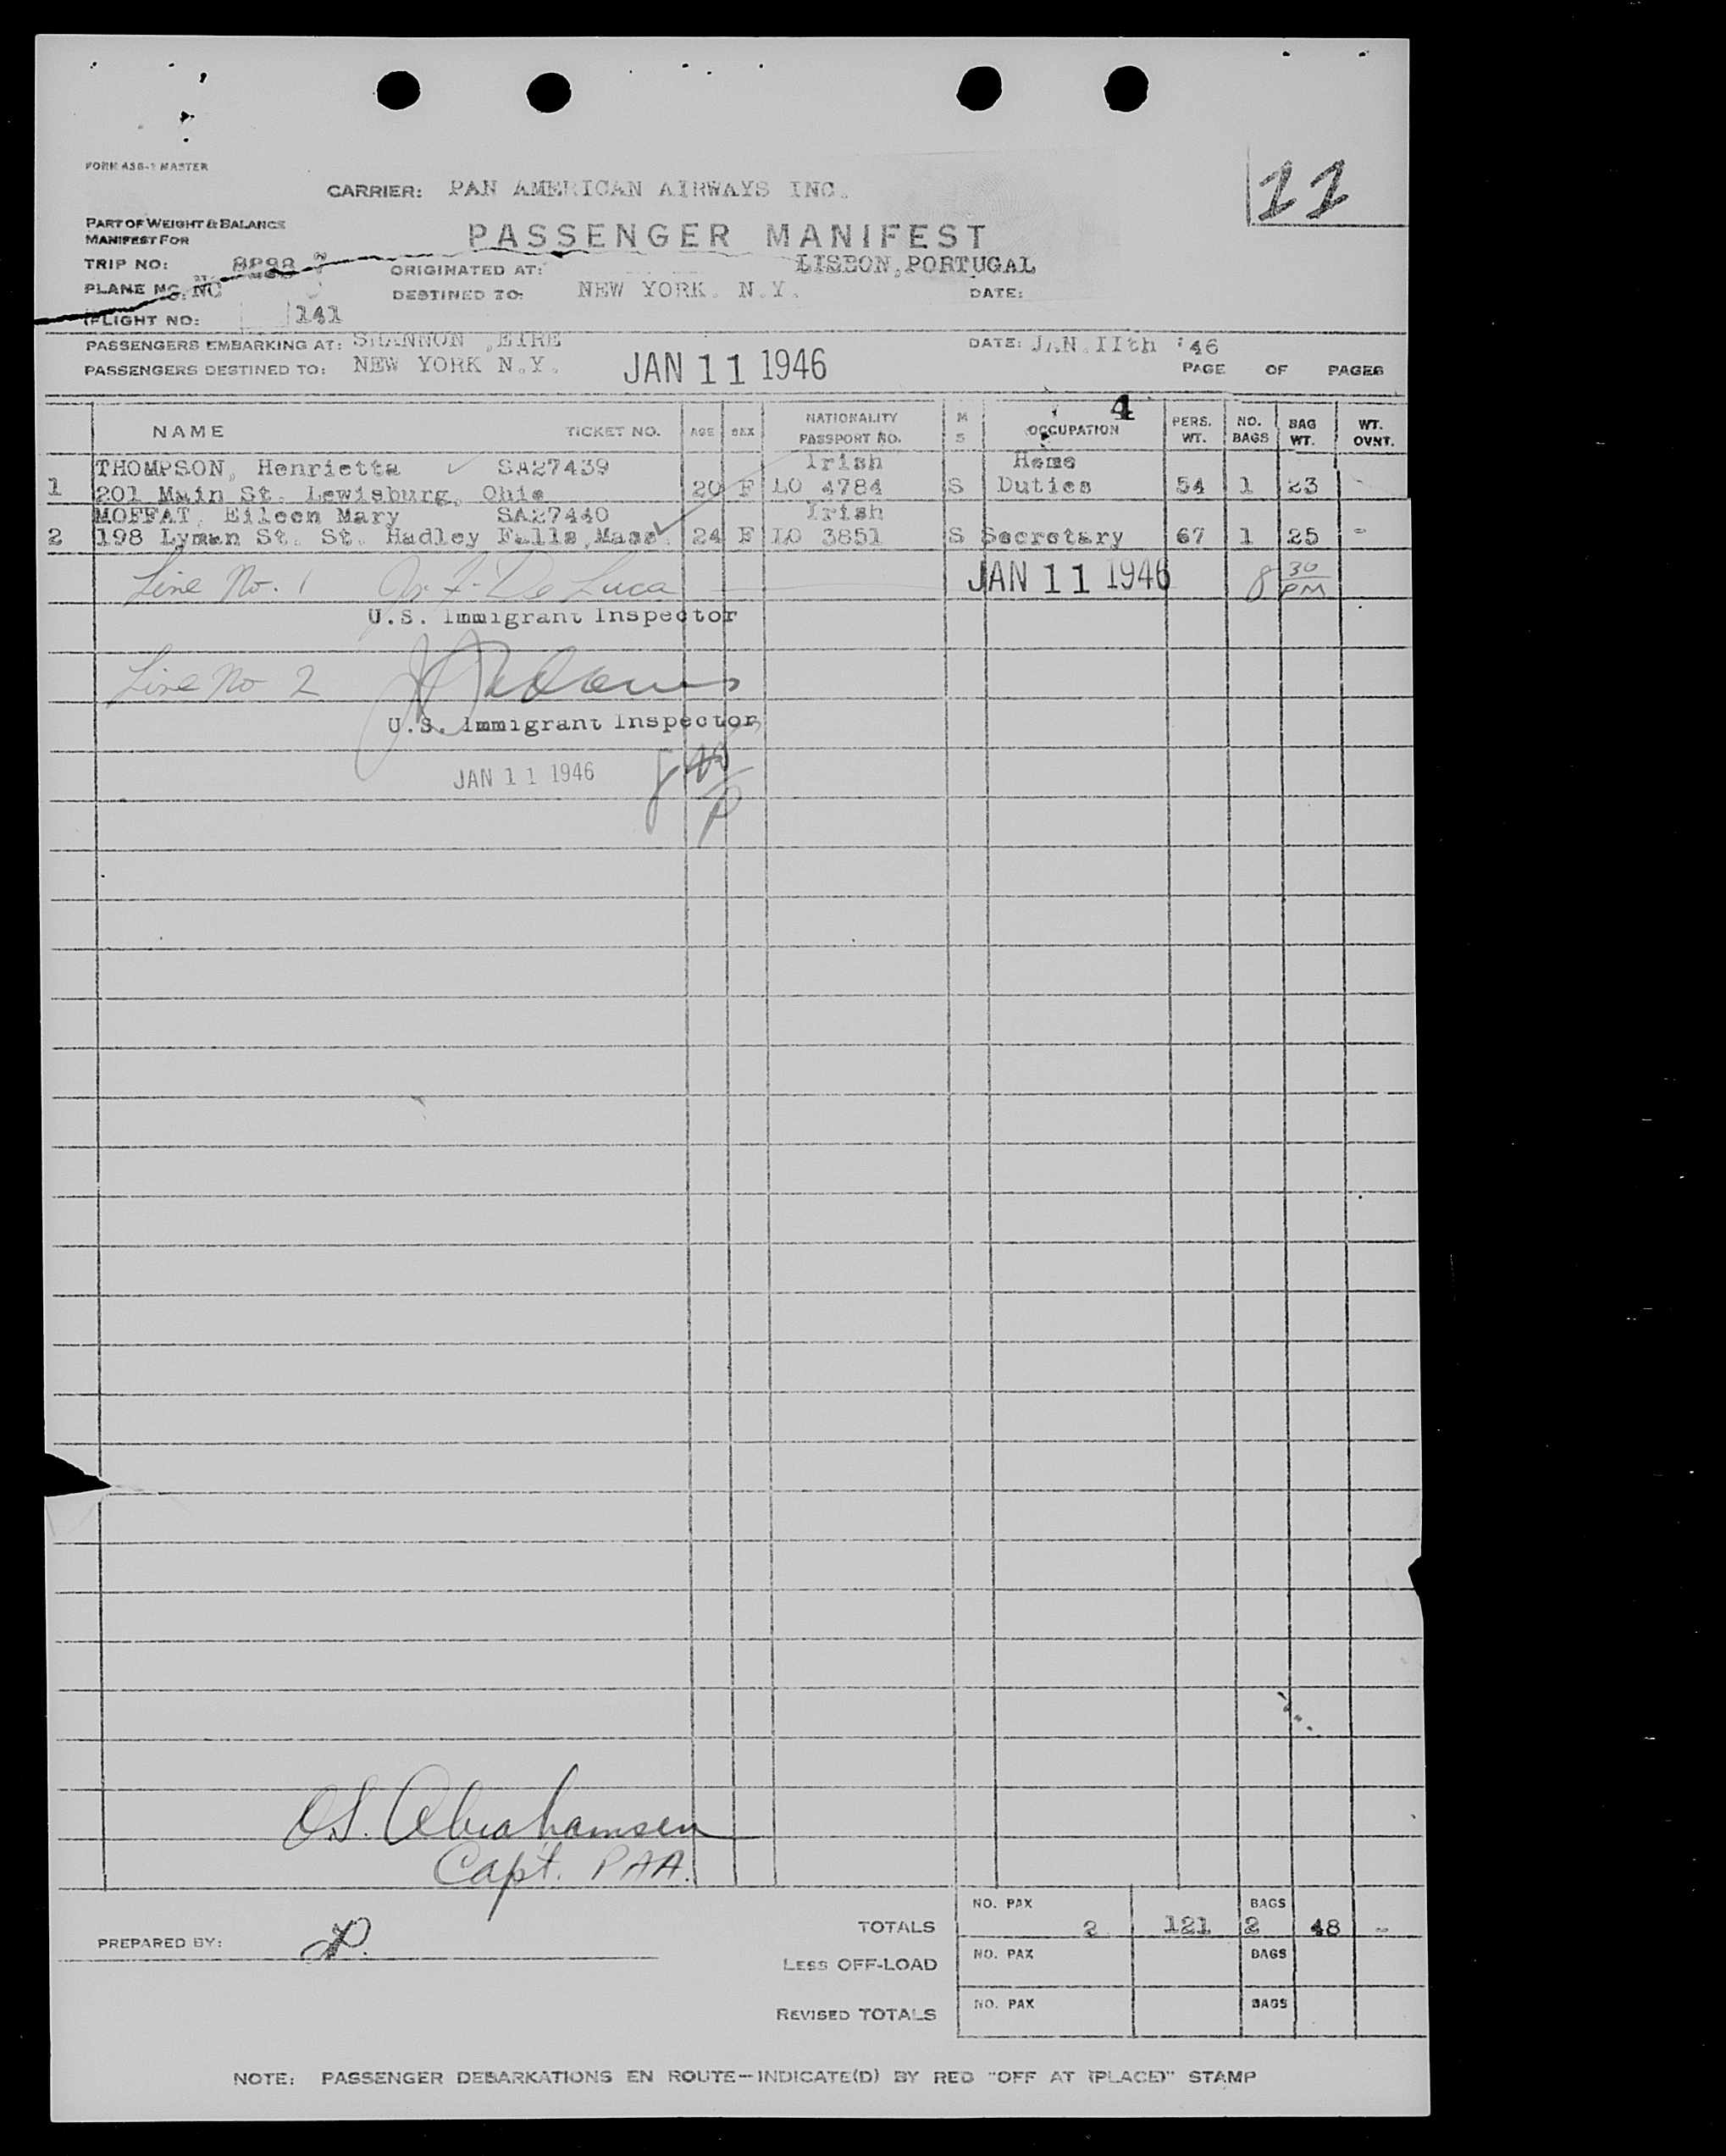 FORM 438-1 MASTER
11
CARRIER: PAN AMERICAN AIRWAYS INC.
PART OF WEIGHT & BALANCE
MANIFEST FOR
PASSENGER MANIFEST
TRIP NO:
ORIGINATED AT: LISBON, PORTUGAL
PLANE NO. NC
DESTINED TO: NEW YORK. N.Y. DATE:
FLIGHT NO: 141
PASSENGERS EMBARKING AT: SHANNON ,EIRE DATE: JAN.IIth '46
PASSENGERS DESTINED TO: NEW YORK N.Y. JAN 11 1946 PAGE OF PAGES
4
NAME TICKET NO. AGE SEX NATIONALITY PASSPORT NO. M S OCCUPATION PERS. WT. NO. BAGS BAG WT. WT. OVNT.
THOMPSON, Henrietta SA27439 Irish Home
1 201 Main St. Lewisburg, Ohio 20 F LO 4784 S Duties 54 1 23
MOFFAT, Eileen Mary SA27440 Irish
2 198 Lyman St. St. Hadley Falls,Mass. 24 F LO 3851 S Secretary 67 1 25 -
Line No. 1 De Luca JAN 11 1946 8 30 PM
U.S. Immigrant Inspector
Line No 2
U.S. Immigrant Inspector
JAN 11 1946
O.S. Abrahamsen
Capt. PAA.
NO. PAX BAGS
TOTALS 2 121 2 48 -
PREPARED BY:
NO. PAX BAGS
LESS OFF-LOAD
NO. PAX BAGS
REVISED TOTALS
NOTE: PASSENGER DEBARKATIONS EN ROUTE—INDICATE(D) BY RED "OFF AT (PLACE)" STAMP